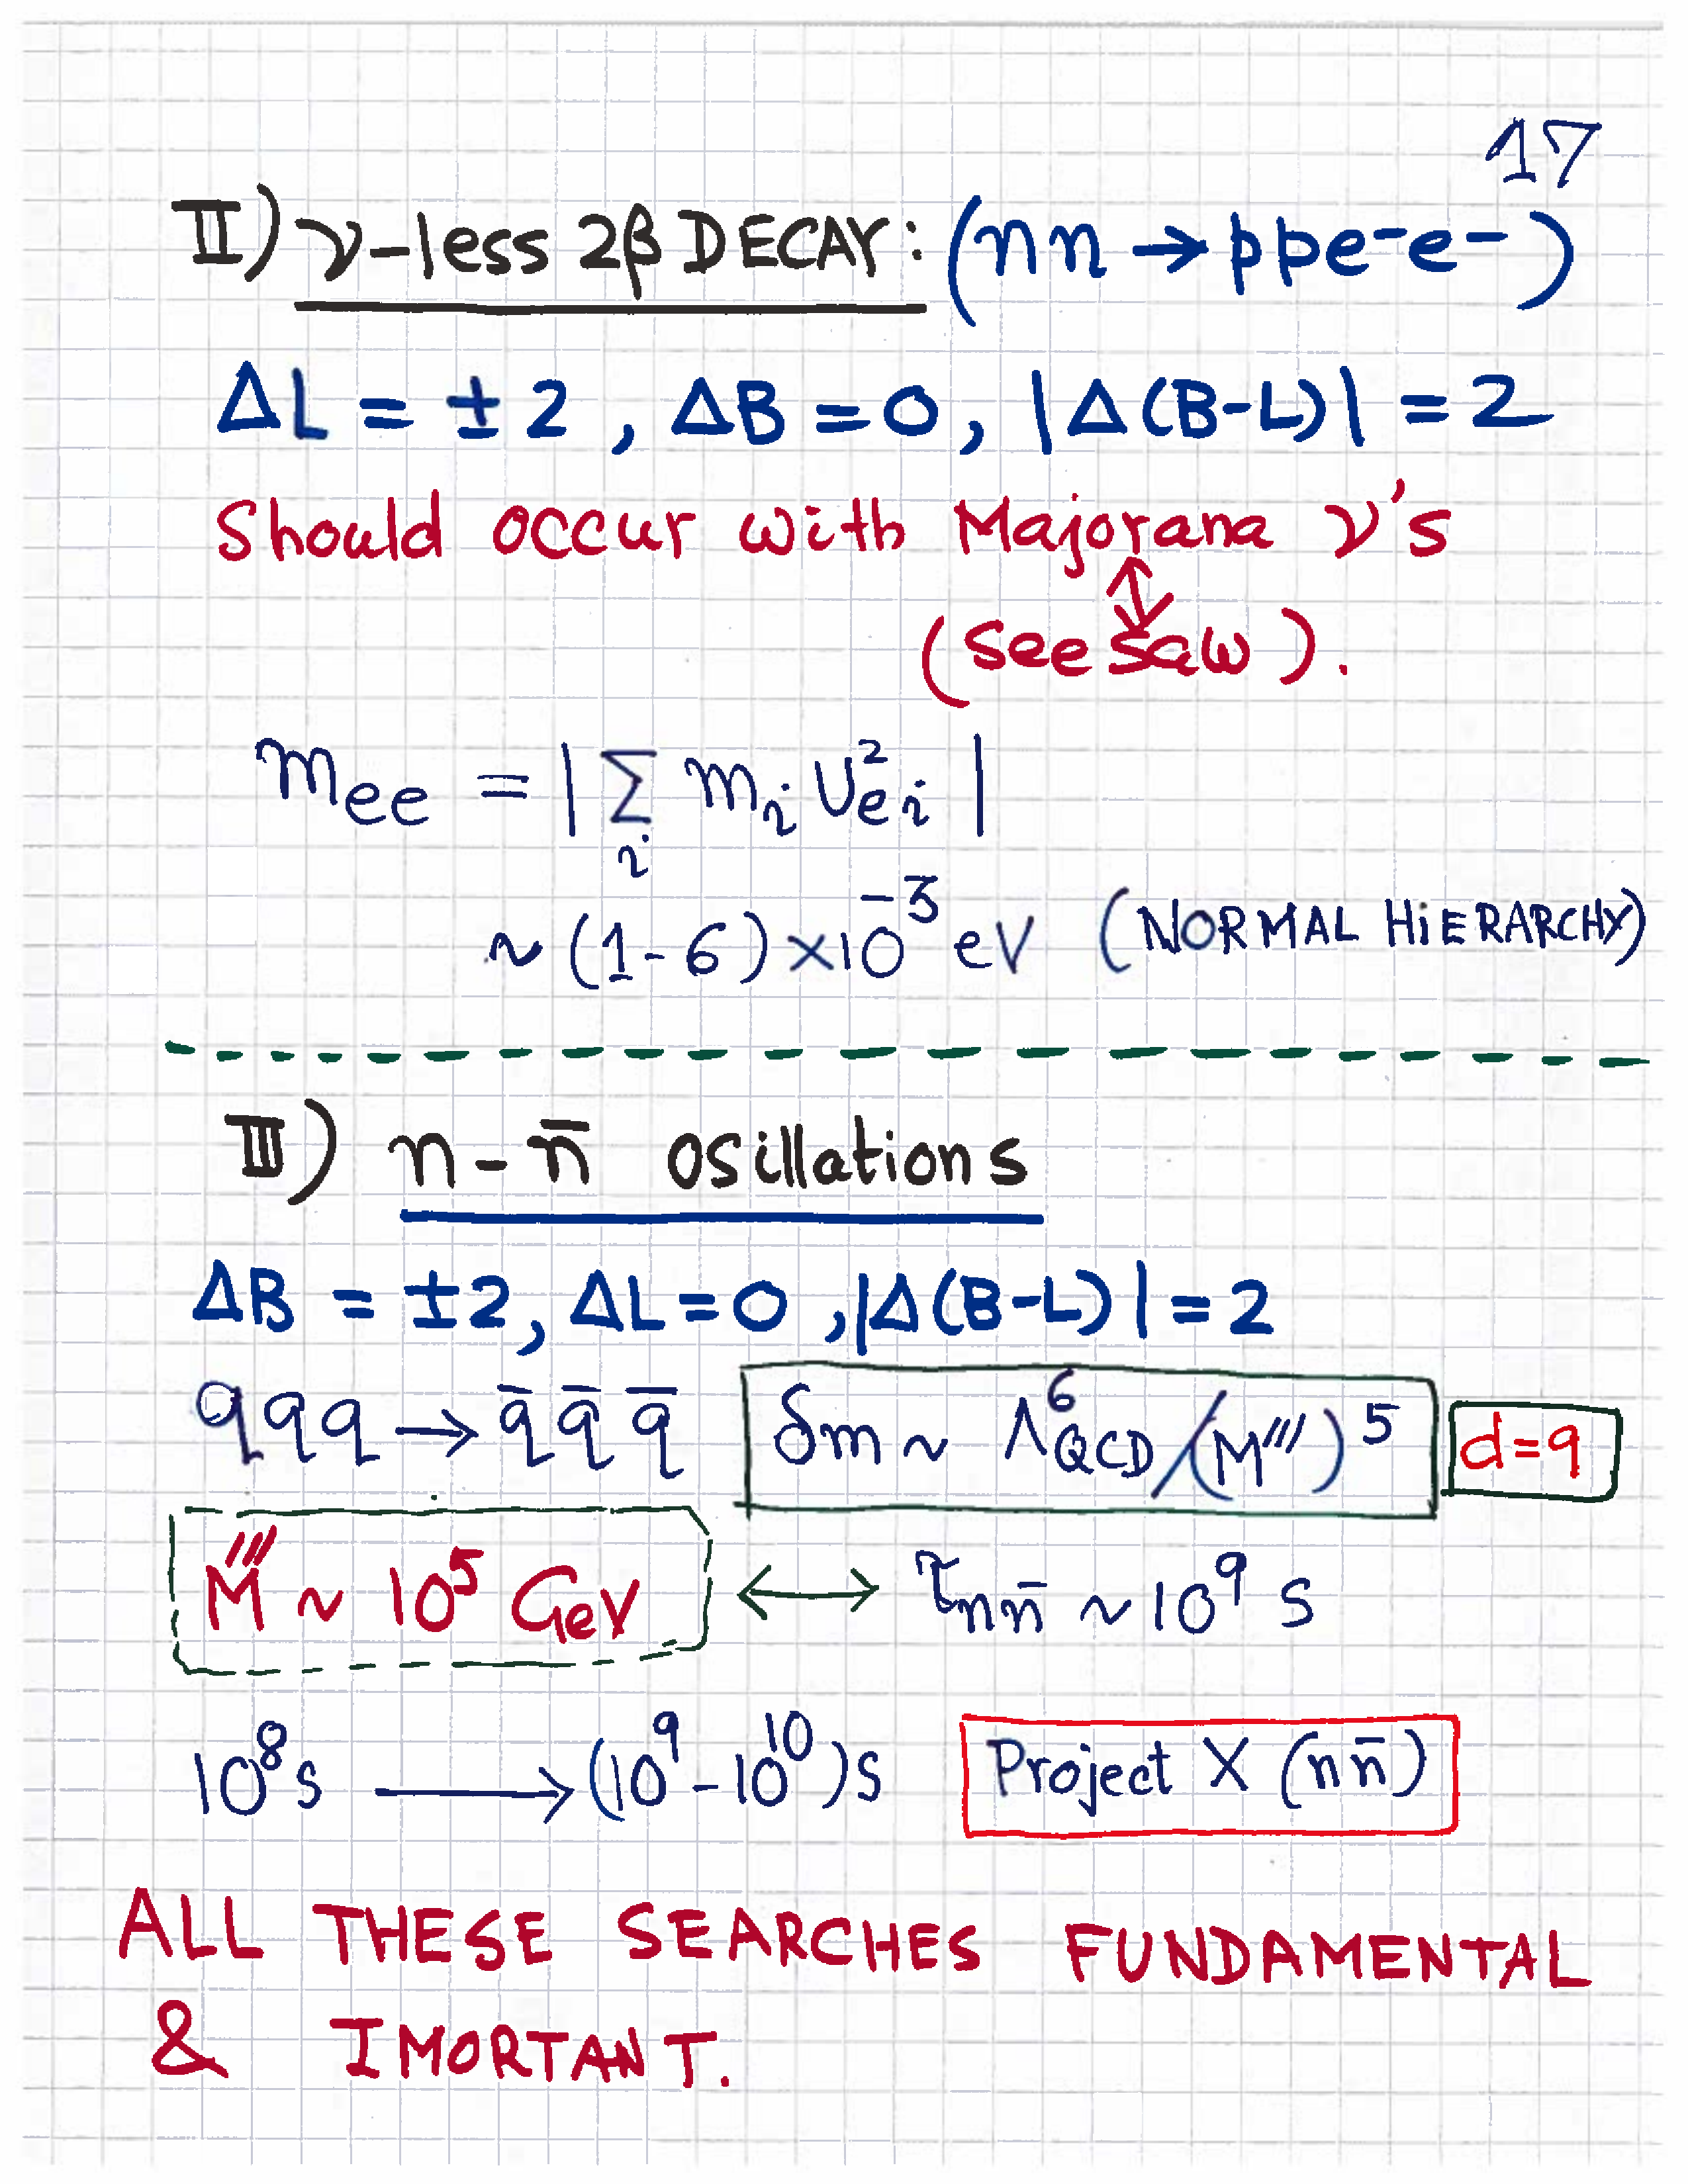 17
II) ν-less 2β DECAY: (nn → ppe⁻e⁻)
ΔL = ±2, ΔB = 0, |Δ(B-L)| = 2
Should occur with Majorana ν's
↕
(see saw).
m_ee = |Σ_i m_i U²_ei|
~ (1-6)×10⁻³ eV (NORMAL HiERARCHY)
III) n - n̄ osillations
ΔB = ±2, ΔL = 0, |Δ(B-L)| = 2
qqq → q̄ q̄ q̄ δm ~ Λ⁶_QCD/(M''')⁵ d=9
M''' ~ 10⁵ GeV ↔ τ_nn̄ ~ 10⁹ s
10⁸ s → (10⁹ - 10¹⁰) s Project X (nn̄)
ALL THESE SEARCHES FUNDAMENTAL
& IMORTANT.